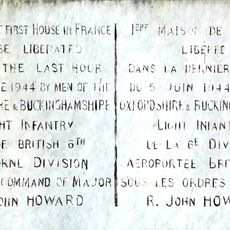 FIRST HOUSE IN FRANCE
BE LIBERATED
THE LAST HOUR
E 1944 BY MEN OF THE
RE & BUCKINGHAMSHIRE
HT INFANTRY
E BRITISH 6TH
RNE DIVISION
COMMAND OF MAJOR
OHN HOWARD
1ERE MAISON DE
LIBERE
DANS LA DERNIER
DU 5 JUIN 1944
OXFORDSHIRE & BUCKIN
LIGHT INFAN
DE LA 6E DIV
AEROPORTEE BRIT
SOUS LES ORDRES
R. JOHN HOW